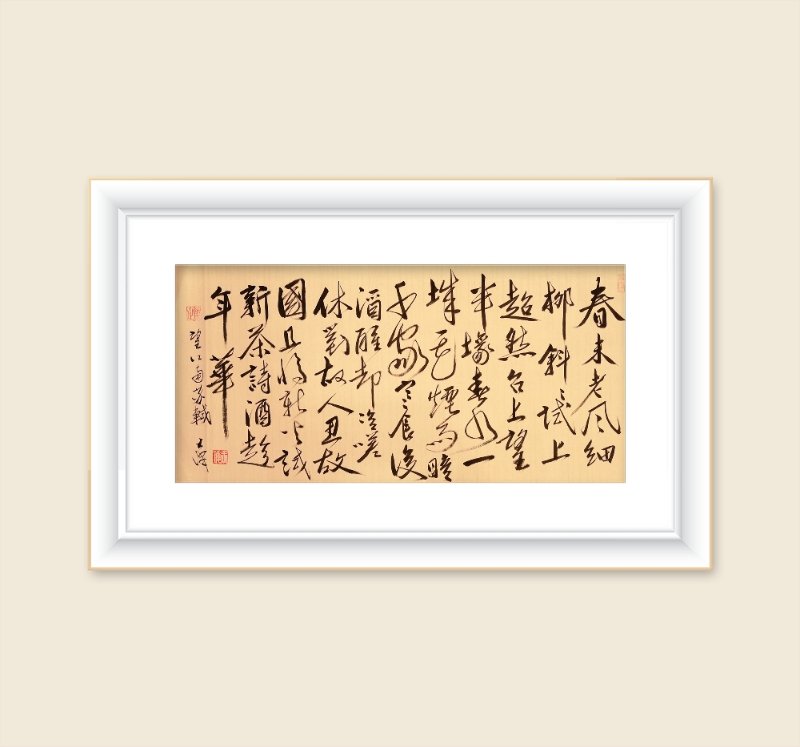 春未老风細
柳斜〻試上
超然台上望
半壕春水一
城花煙雨暗
千家寒食後
酒醒却咨嗟
休對故人思故
國且將新火試
新茶詩酒趁
年華
望江南蘇軾